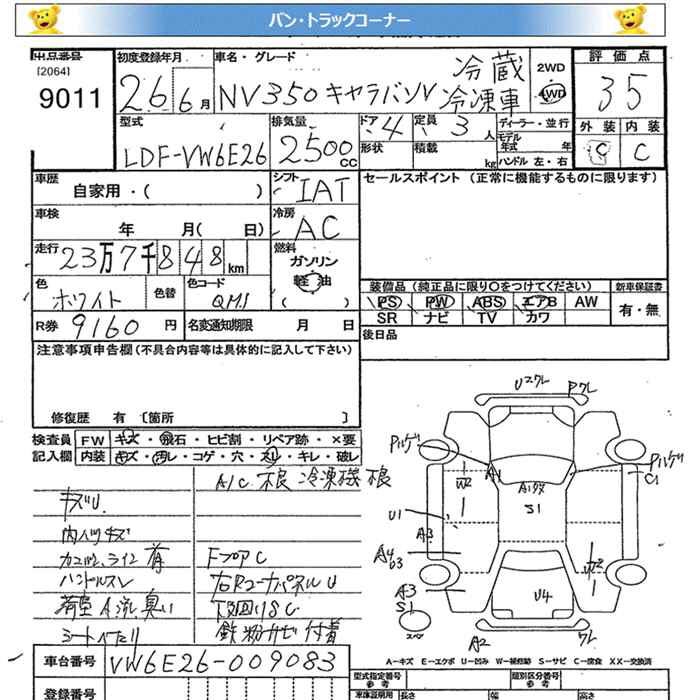 バン・トラックコーナー
出品番号
[2064]
9011
初度登録年月
26年6月
車名・グレード
NV350キャラバンV 冷蔵
冷凍車
2WD
4WD
評価点
35
外装 内装
C C
型式
LDF-VW6E26
排気量
2500cc
ドア 4
形状
定員 3人
積載 kg
ディーラー・並行
モデル年式 年
ハンドル 左・右
車歴
自家用・( )
シフト
IAT
セールスポイント (正常に機能するものに限ります)
車検
年 月( 日)
冷房
AC
走行
23万7千848km
燃料
ガソリン
軽油
( )
色
ホワイト
色替
色コード
QM1
装備品(純正品に限り○をつけてください)
新車保証書
PS PW ABS エアB AW
有・無
SR ナビ TV カワ
R券 9160円
名変通知期限 月 日
後日品
注意事項申告欄(不具合内容等は具体的に記入して下さい)
修復歴 有 [箇所 ]
検査員
記入欄
FW キズ・飛石・ヒビ割・リペア跡・×要
内装 キズ・汚レ・コゲ・穴・スレ・キレ・破レ
A/C 不良 冷凍機 不良
キズU
内張キズ
ハンドルスレ
FフロアC
右RコーナパネルU
荷室 A 流 臭い
下廻りSC
鉄粉サビ付着
シートヘタリ
Uスワレ
Pワレ
Pハゲ
W2
A1
A1タタ
S1
Pハゲ
C1
U1
A3
A4
b3
A3
S1
U4
W2
スペ
A2
ワレ
A-キズ E-エクボ U-凹み W-補修跡 S-サビ C-腐食 XX-交換済
車台番号
VW6E26-009083
登録番号
型式指定番号
参考
類別区分番号
参考
車庫証明用
長さ
幅
高さ